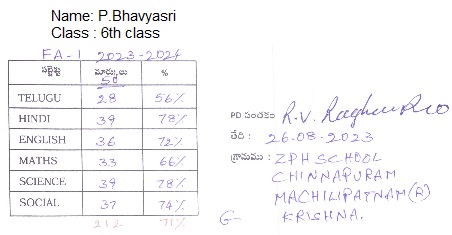 Name: P.Bhavyasri
Class : 6th class
FA-1 2023-2024
సబ్జెక్టు మార్కులు %
50
TELUGU 28 56%
HINDI 39 78%
ENGLISH 36 72%
MATHS 33 66%
SCIENCE 39 78%
SOCIAL 37 74%
212 71%
PD సంతకం R.V. Raghu Rao
తేది : 26-08-2023
గ్రామము : ZPH SCHOOL
CHINNAPURAM
MACHILIPATNAM (R)
G- KRISHNA.